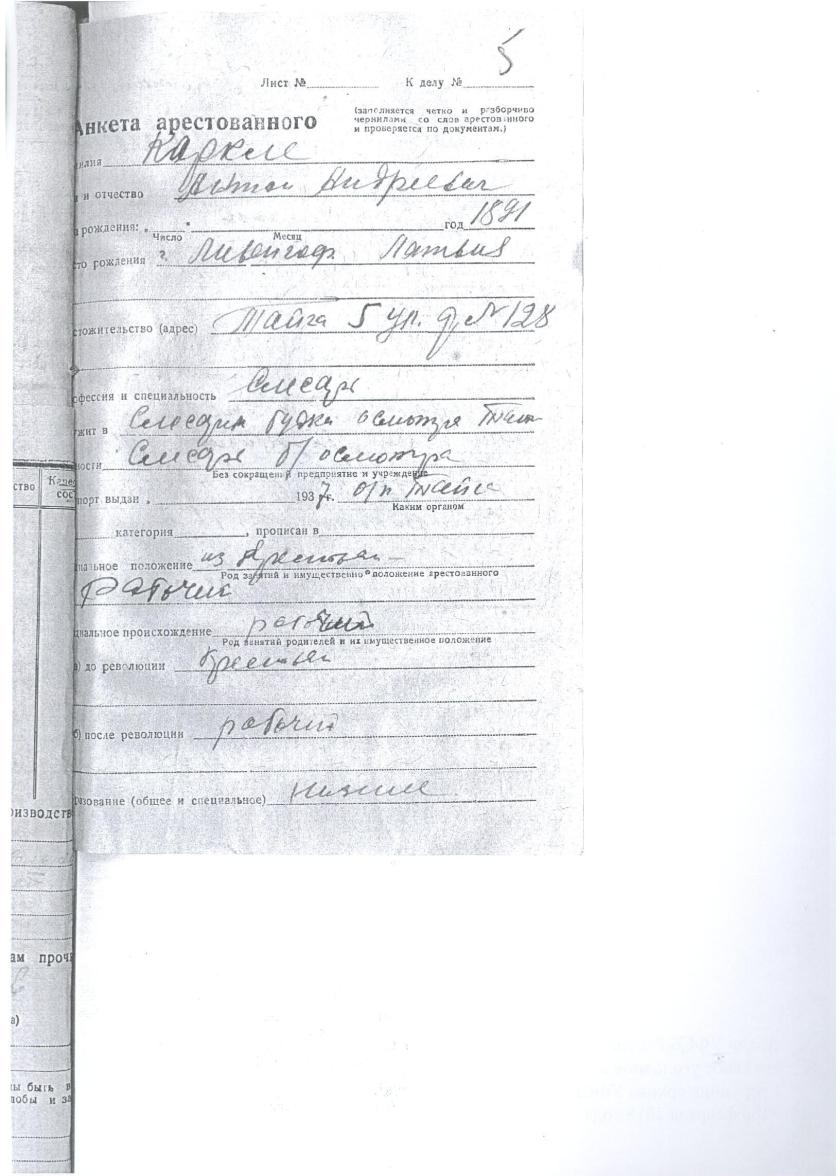 5
Лист № К делу №
Анкета арестованного
(заполняется четко и разборчиво
чернилами со слов арестованного
и проверяется по документам.)
илия Каркле
и отчество Антон Андреевич
рождения: „ " год 1891
Число Месяц
то рождения г. Ливенгоф Латвия
стожительство (адрес) Тайга 5 ул. д. № 128
офессия и специальность Слесарь
жит в будка осмотра
ности Слесарь б/ осмотра
Без сокращений предприятие и учреждение
порт выдан „ 1937 г. о/п Тайга
Каким органом
категория , прописан в
иальное положение из крестьян –
Род занятий и имущественное положение арестованного
рабочий
циальное происхождение рабочий
Род занятий родителей и их имущественное положение
а) до революции
б) после революции рабочий
разование (общее и специальное) низшее
ство
сос
оизводств
ам проч
а)
ы быть в
лобы и за